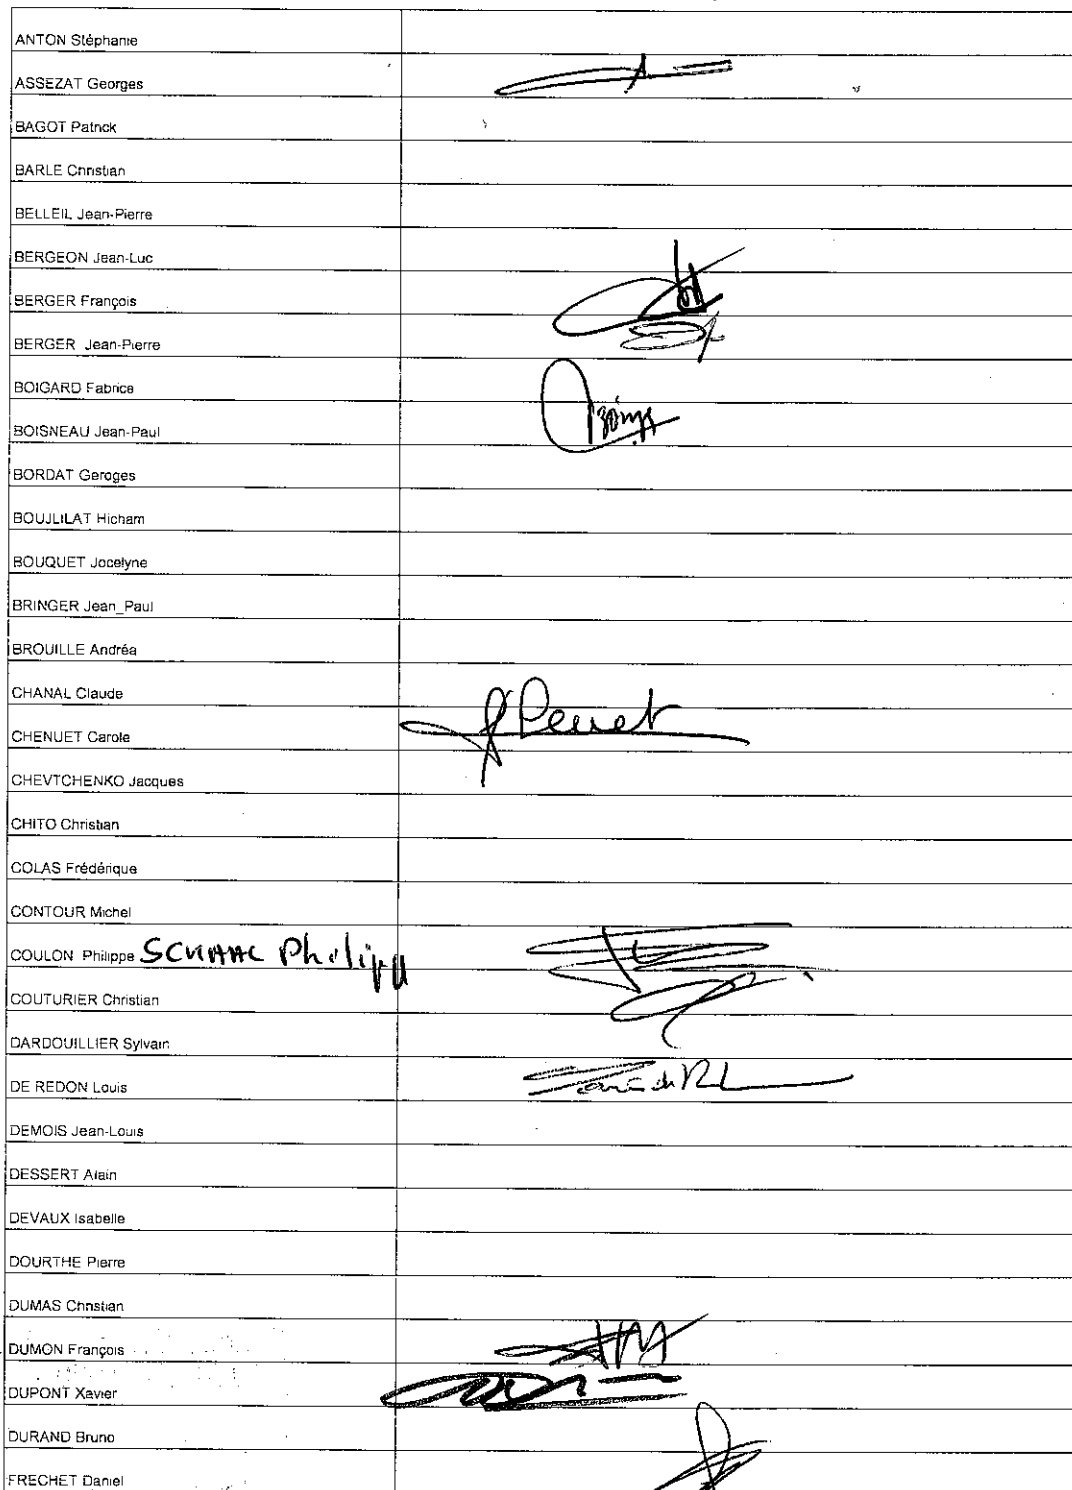 ANTON Stéphanie
ASSEZAT Georges
BAGOT Patrick
BARLE Christian
BELLEIL Jean-Pierre
BERGEON Jean-Luc
BERGER François
BERGER Jean-Pierre
BOIGARD Fabrice
BOISNEAU Jean-Paul
BORDAT Geroges
BOUJLILAT Hicham
BOUQUET Jocelyne
BRINGER Jean_Paul
BROUILLE Andréa
CHANAL Claude
CHENUET Carole
CHEVTCHENKO Jacques
CHITO Christian
COLAS Frédérique
CONTOUR Michel
COULON Philippe
COUTURIER Christian
DARDOUILLIER Sylvain
DE REDON Louis
DEMOIS Jean-Louis
DESSERT Alain
DEVAUX Isabelle
DOURTHE Pierre
DUMAS Christian
DUMON François
DUPONT Xavier
DURAND Bruno
FRECHET Daniel